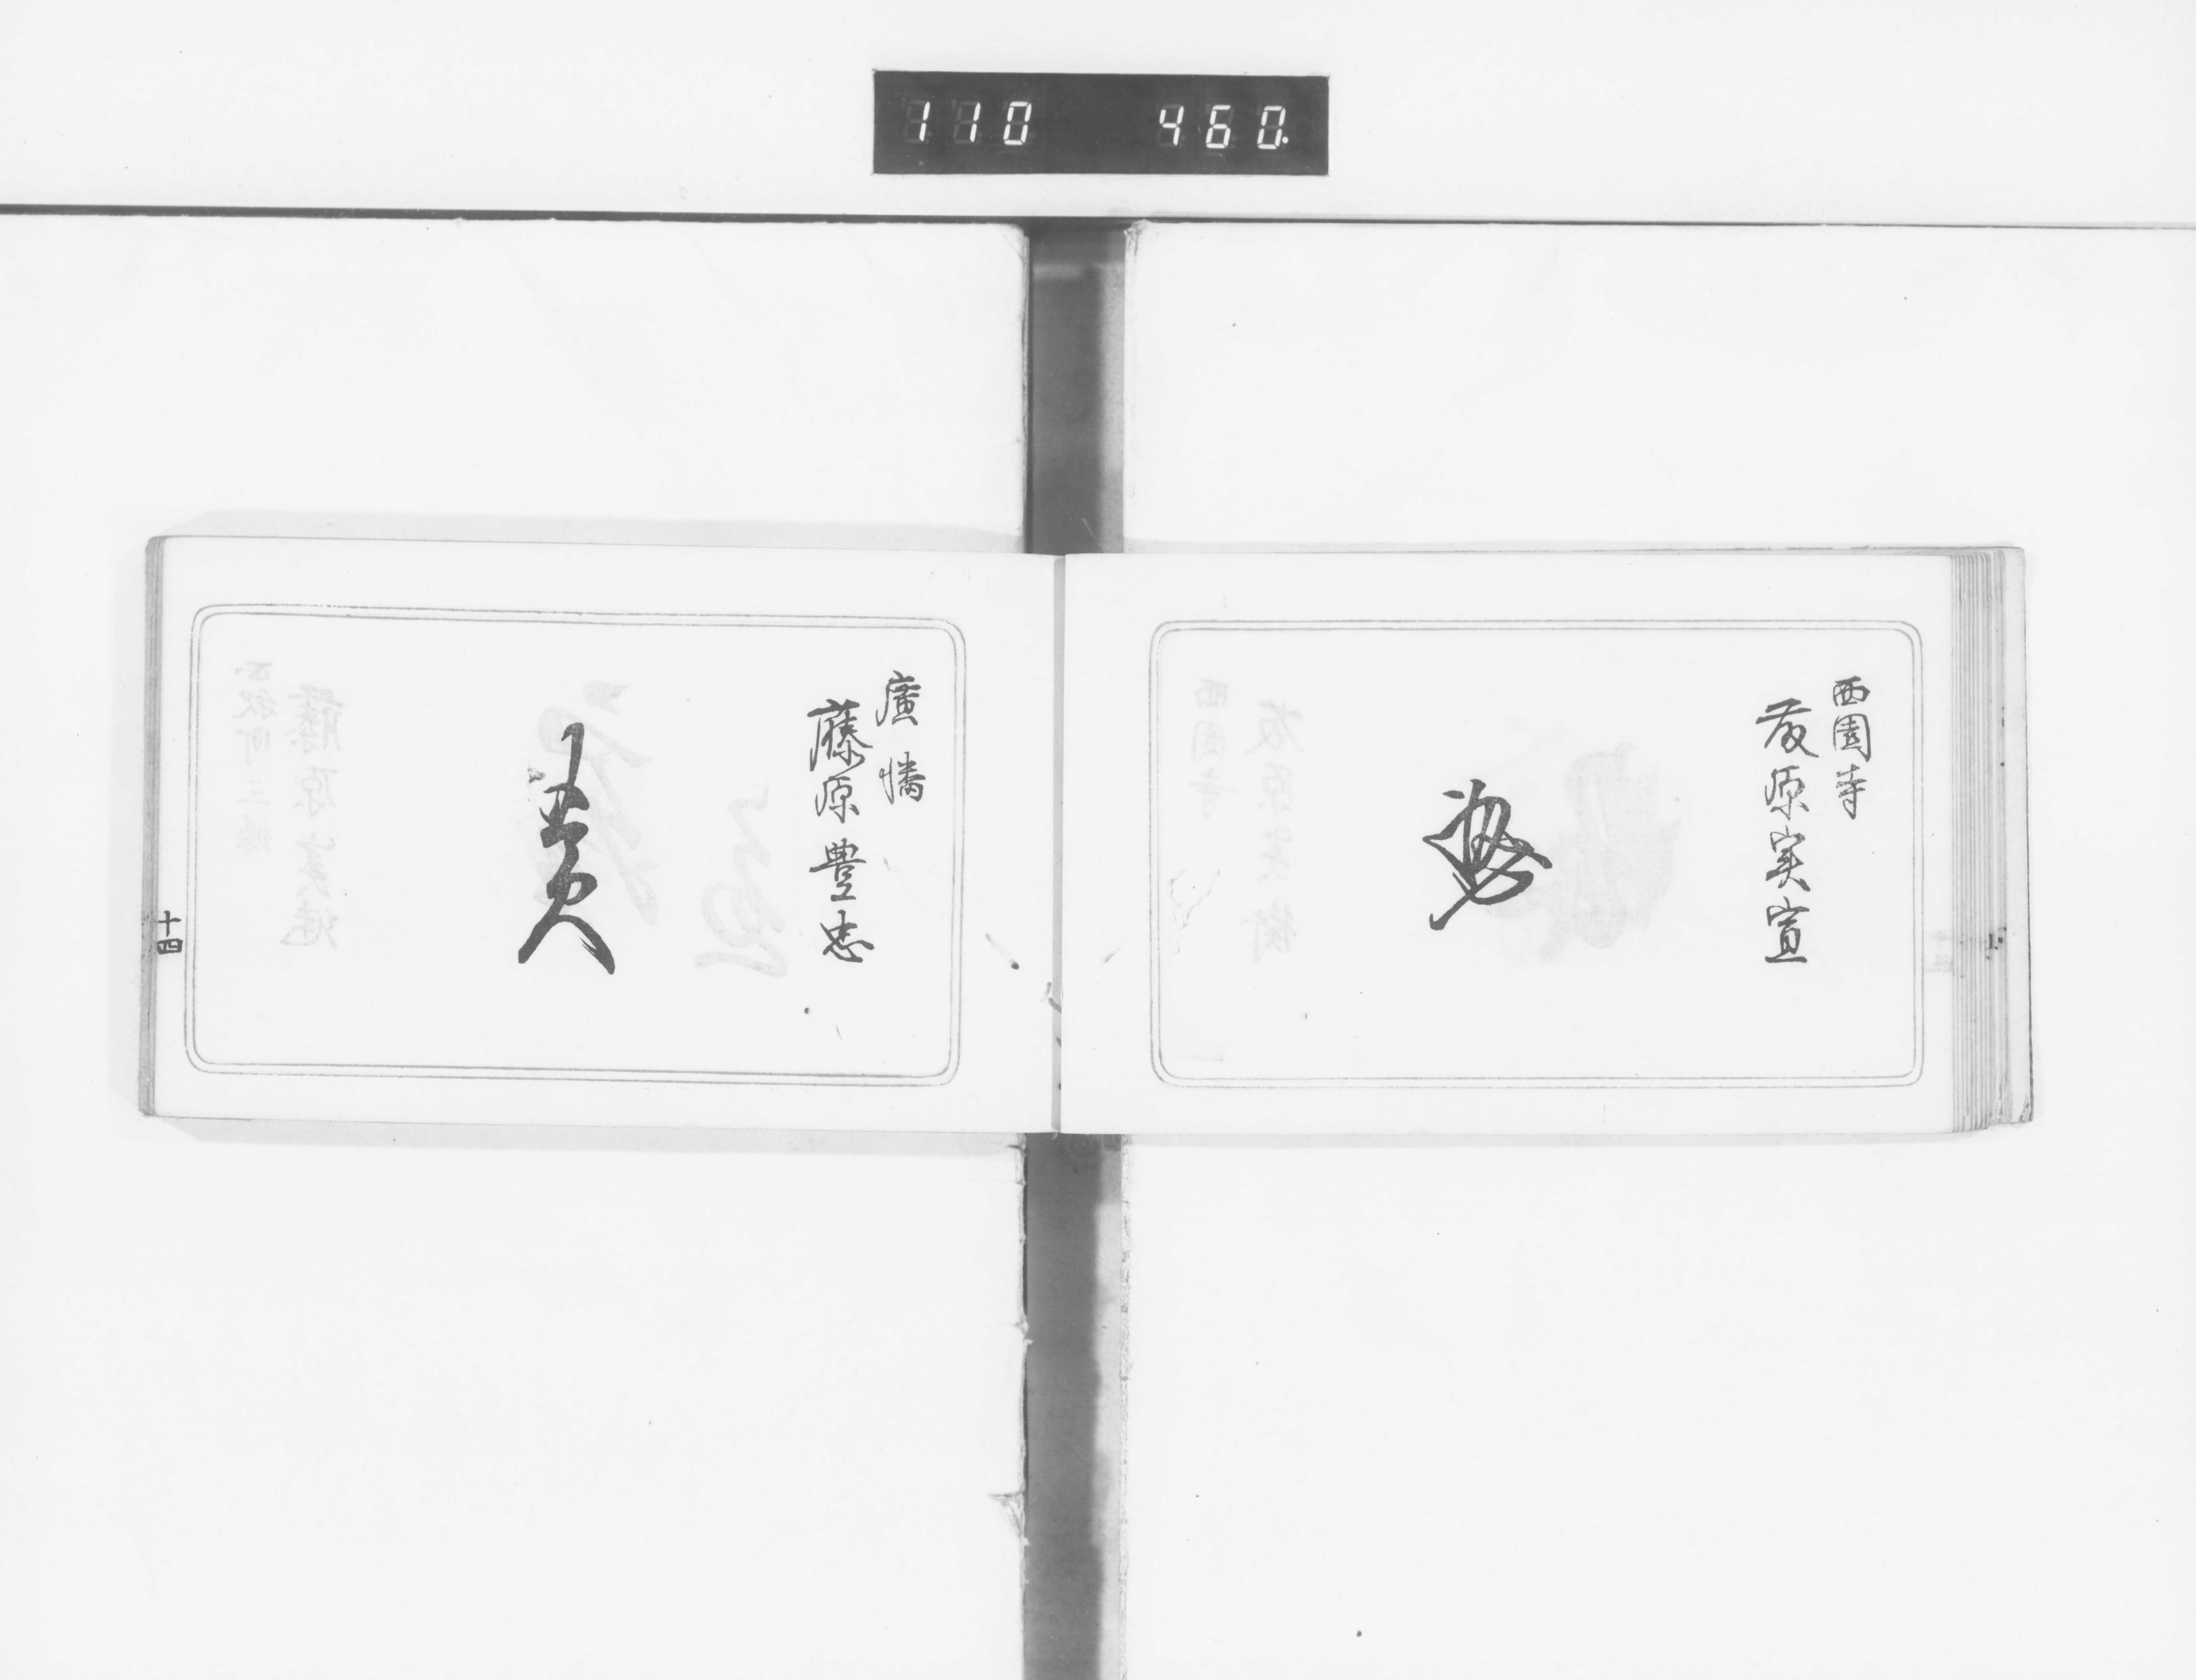 110 460.
西園寺
藤原実宣
廣幡
藤原豊忠
十四